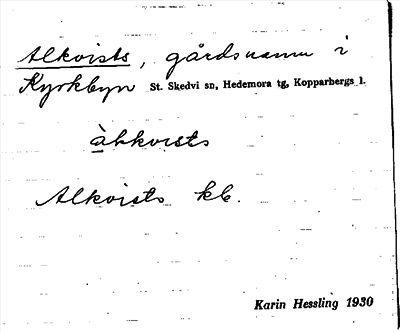 Alkvists, gårdsnamn i
Kyrkbyn St. Skedvi sn, Hedemora tg, Kopparbergs l.
àkkvists
Alkvists kb.
Karin Hessling 1930